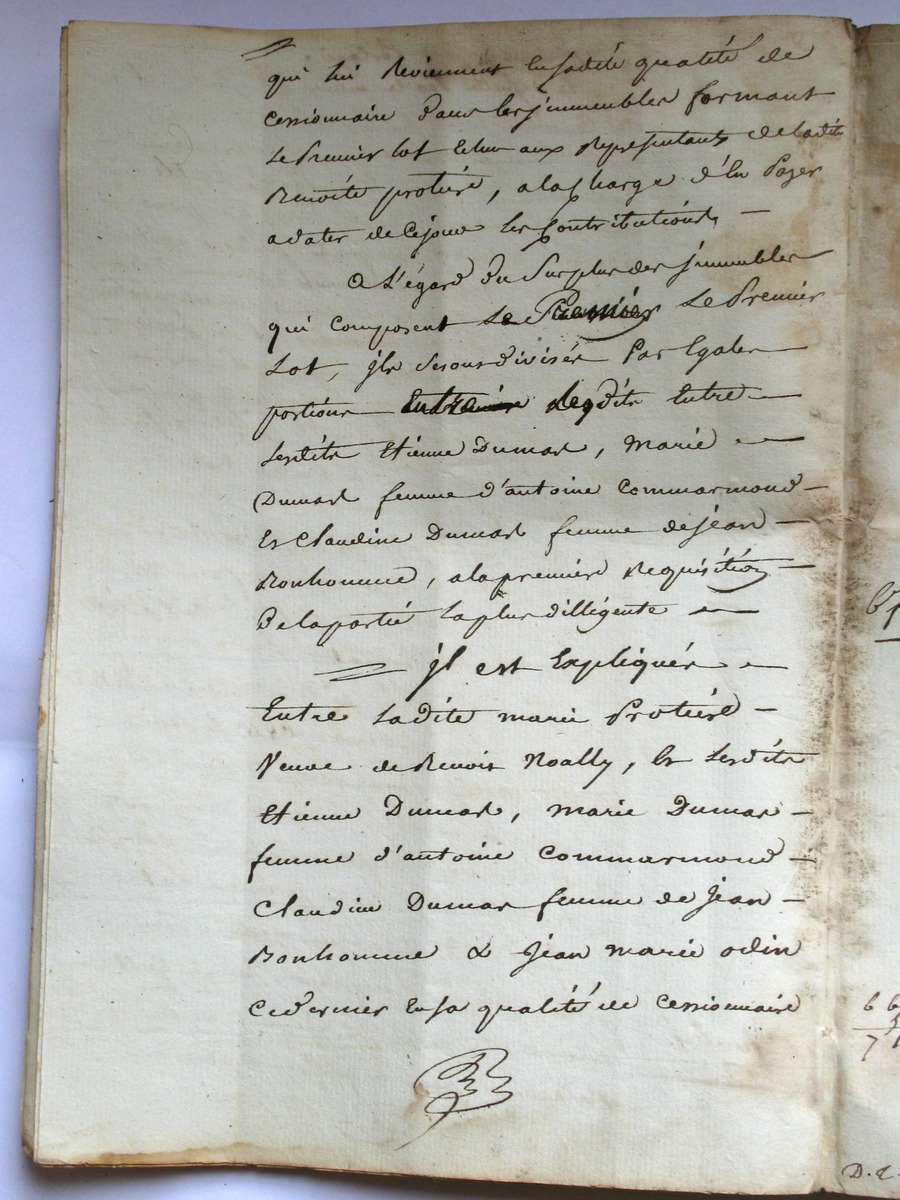 qui lui Reviennent En sadité qualité de
Cessionnaire dans les jmmeubles formant
Le Premier lot Echu aux Représentants de ladite
Benoite protière, a la Charge d'En Payer
a dater de Ce jour les Contributions, —
A L'égard du Surplus des jmmeubles
qui Composent Le Premier Le Premier
Lot, jls Serons divisés Par Egales —
portions — Entre Lesdits Entre —
Lesdits Etienne Dumas, Marie —
Dumas femme d'antoine Commarmond —
Et Claudine Dumas femme de jean —
Bonhomme, a la première Requisition —
De la partie La plus dilligente —
= jl est Expliqués —
Entre Ladite marie Protière —
Veuve de Benoit Noally, Et Lesdits
Etienne Dumas, marie Dumas —
femme d'antoine Commarmond —
Claudine Dumas femme de jean —
Bonhomme & jean marie odin
Ce dernier En sa qualité de Cessionnaire
6 6
7 1
D.